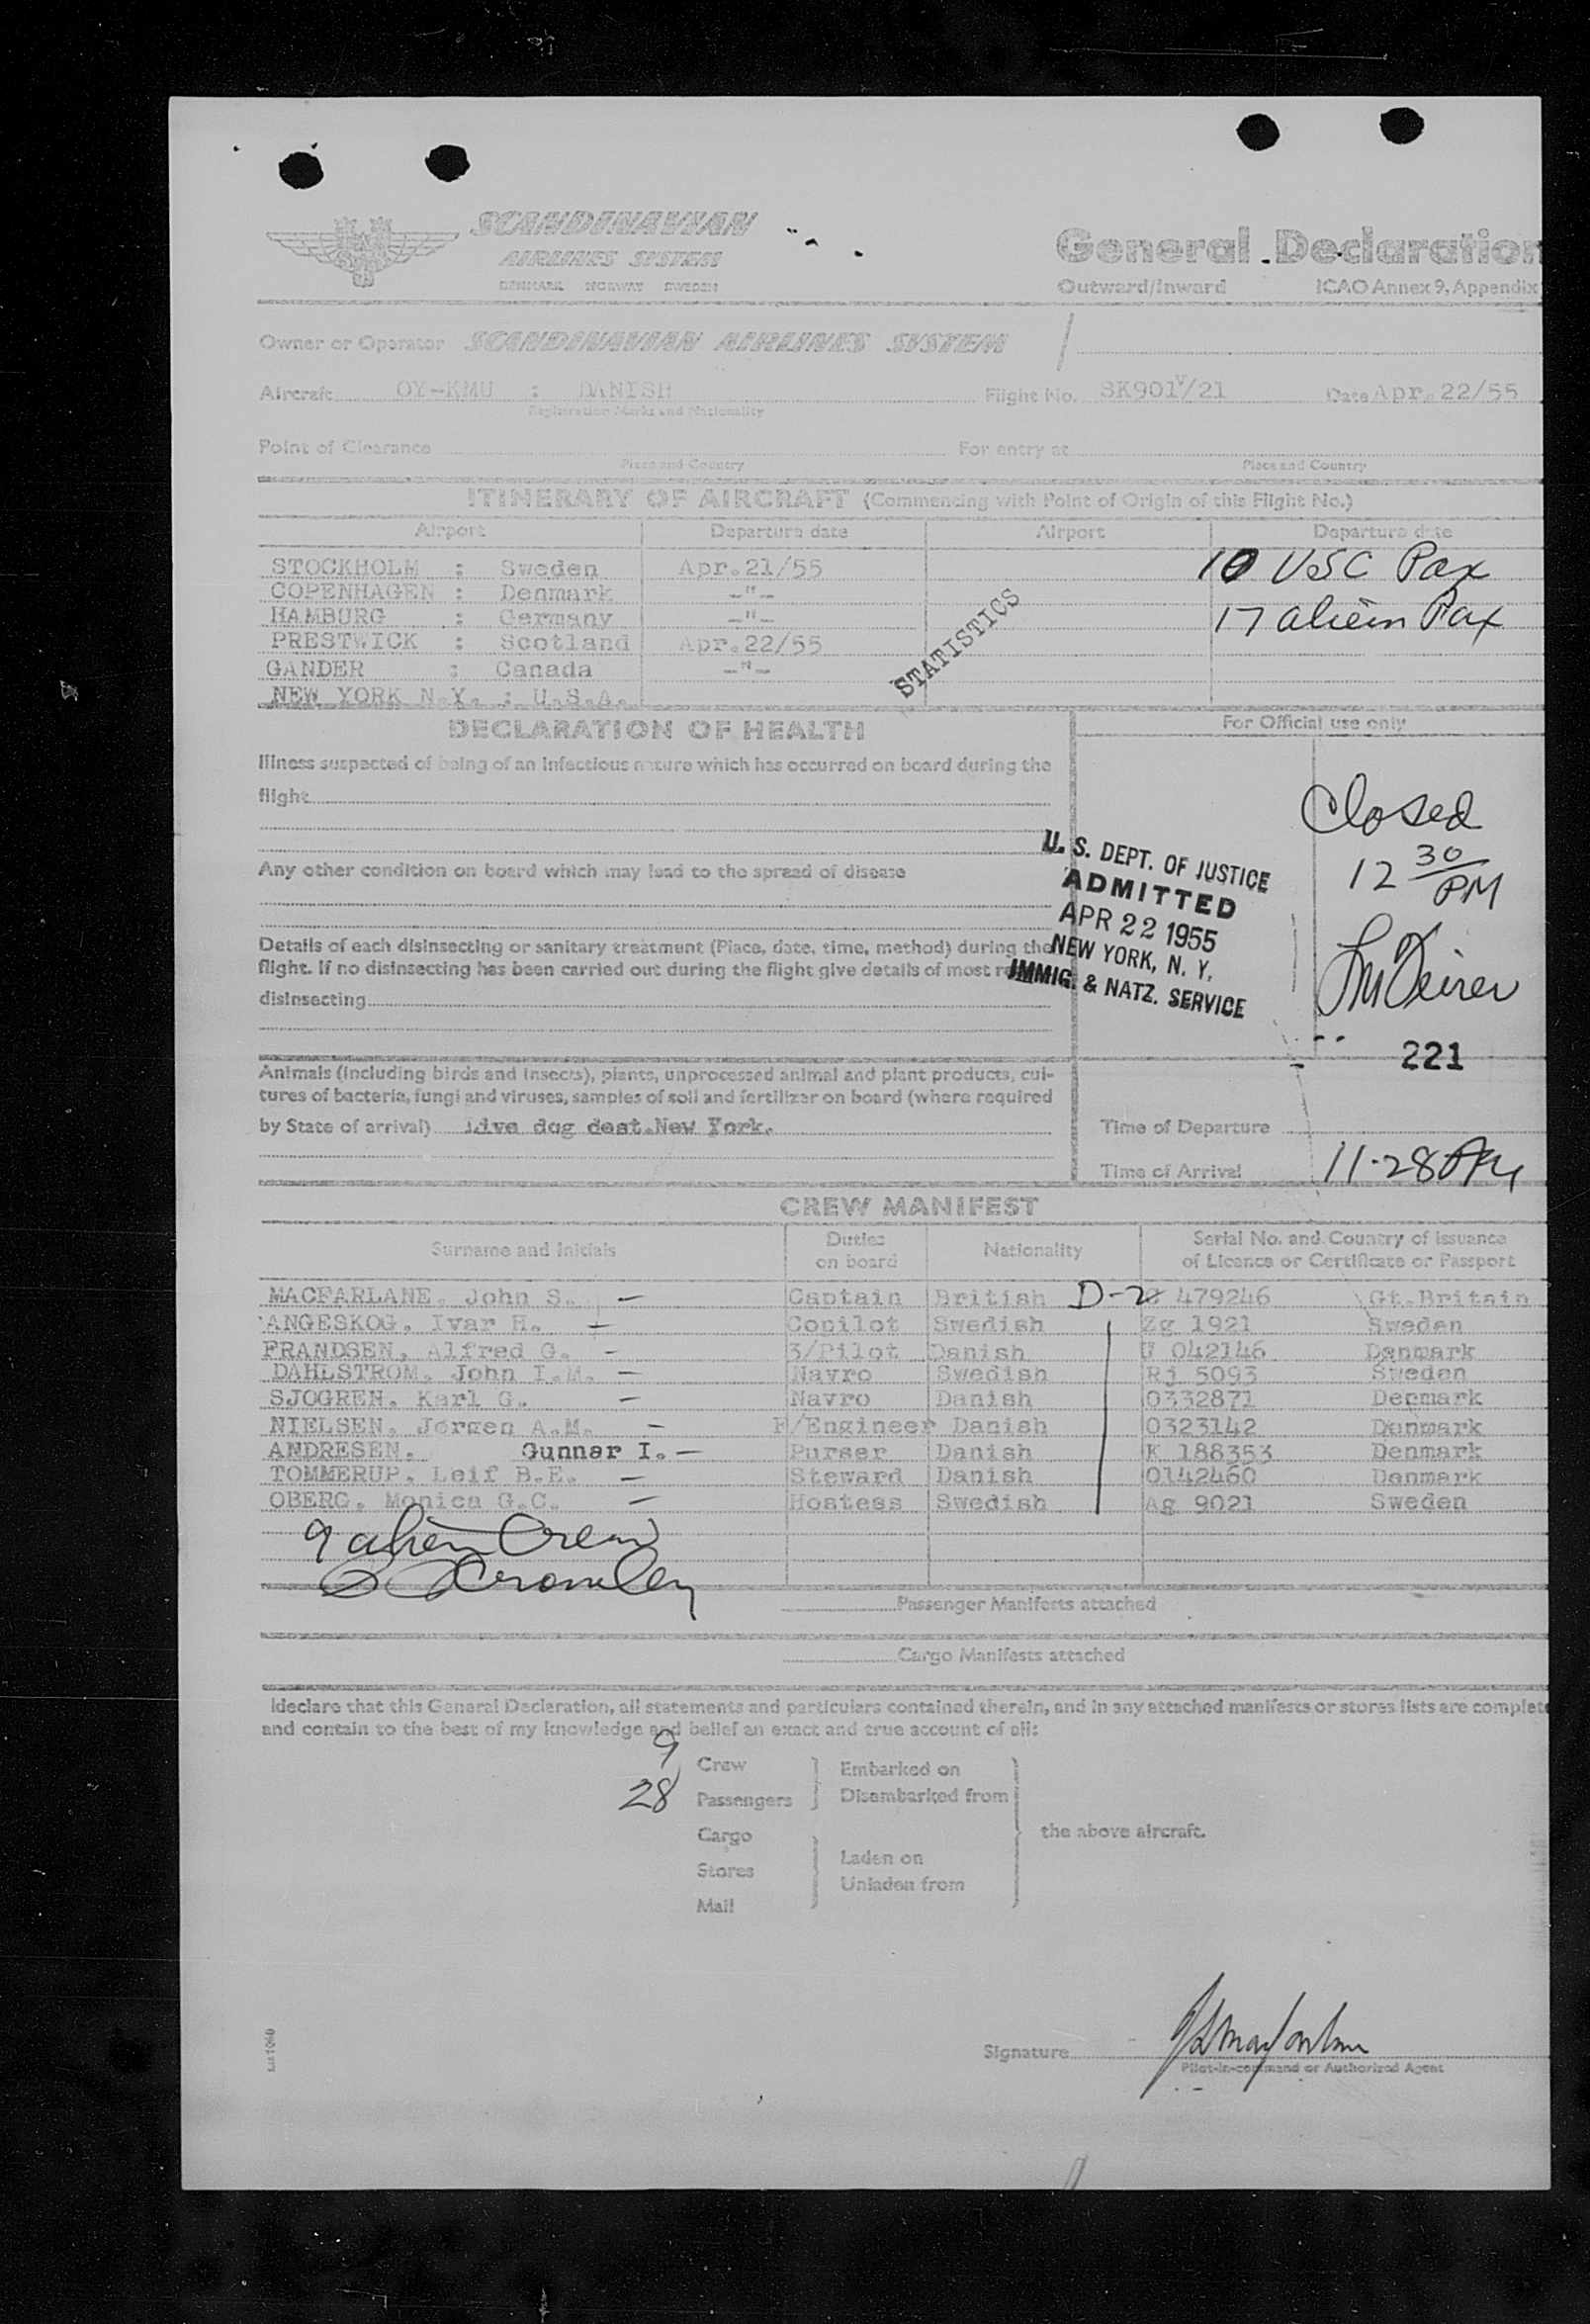 SCANDINAVIAN
AIRLINES SYSTEM
DENMARK NORWAY SWEDEN
General Declaration
Outward/Inward ICAO Annex 9, Appendix
Owner or Operator SCANDINAVIAN AIRLINES SYSTEM
Aircraft OY-KMU : DANISH Flight No. SK901/21 Date Apr. 22/55
Registration Marks and Nationality
Point of Clearance For entry at
Place and Country Place and Country
ITINERARY OF AIRCRAFT (Commencing with Point of Origin of this Flight No.)
Airport Departure date Airport Departure date
STOCKHOLM : Sweden Apr.21/55 10 USC Pax
COPENHAGEN : Denmark -"-
HAMBURG : Germany -"- 17 alien Pax
PRESTWICK : Scotland Apr.22/55
GANDER : Canada -"-
NEW YORK N.Y. : U.S.A.
STATISTICS
DECLARATION OF HEALTH
Illness suspected of being of an infectious nature which has occurred on board during the
flight
Any other condition on board which may lead to the spread of disease
Details of each disinsecting or sanitary treatment (Place, date, time, method) during the
flight. If no disinsecting has been carried out during the flight give details of most
disinsecting
For Official use only
Closed
12 30
PM
U. S. DEPT. OF JUSTICE
ADMITTED
APR 22 1955
NEW YORK, N. Y.
IMMIG. & NATZ. SERVICE
221
Animals (including birds and insects), plants, unprocessed animal and plant products, cul-
tures of bacteria, fungi and viruses, samples of soil and fertilizer on board (where required
by State of arrival) Live dog dest.New York.
Time of Departure
Time of Arrival 11-28 AM
CREW MANIFEST
Surname and Initials Duties on board Nationality Serial No. and Country of issuance of Licence or Certificate or Passport
MACFARLANE, John S. — Captain British D-2 479246 Gt.Britain
ANGESKOG, Ivar H. — Copilot Swedish Zg 1921 Sweden
FRANDSEN, Alfred G. — 3/Pilot Danish U 042146 Denmark
DAHLSTROM, John I.M. — Navro Swedish Rj 5093 Sweden
SJOGREN, Karl G. — Navro Danish 0332871 Denmark
NIELSEN, Jorgen A.M. — F/Engineer Danish 0323142 Denmark
ANDRESEN, Gunnar I. — Purser Danish K 188353 Denmark
TOMMERUP, Leif B.E. — Steward Danish 0142460 Denmark
OBERG, Monica G.C. — Hostess Swedish Ag 9021 Sweden
9 alien Crew
Cromley
Passenger Manifests attached
Cargo Manifests attached
I declare that this General Declaration, all statements and particulars contained therein, and in any attached manifests or stores lists are complete
and contain to the best of my knowledge and belief an exact and true account of all:
9 Crew Embarked on
28 Passengers Disembarked from
Cargo the above aircraft.
Stores Laden on
Unladen from
Mail
Signature
Pilot-in-command or Authorized Agent